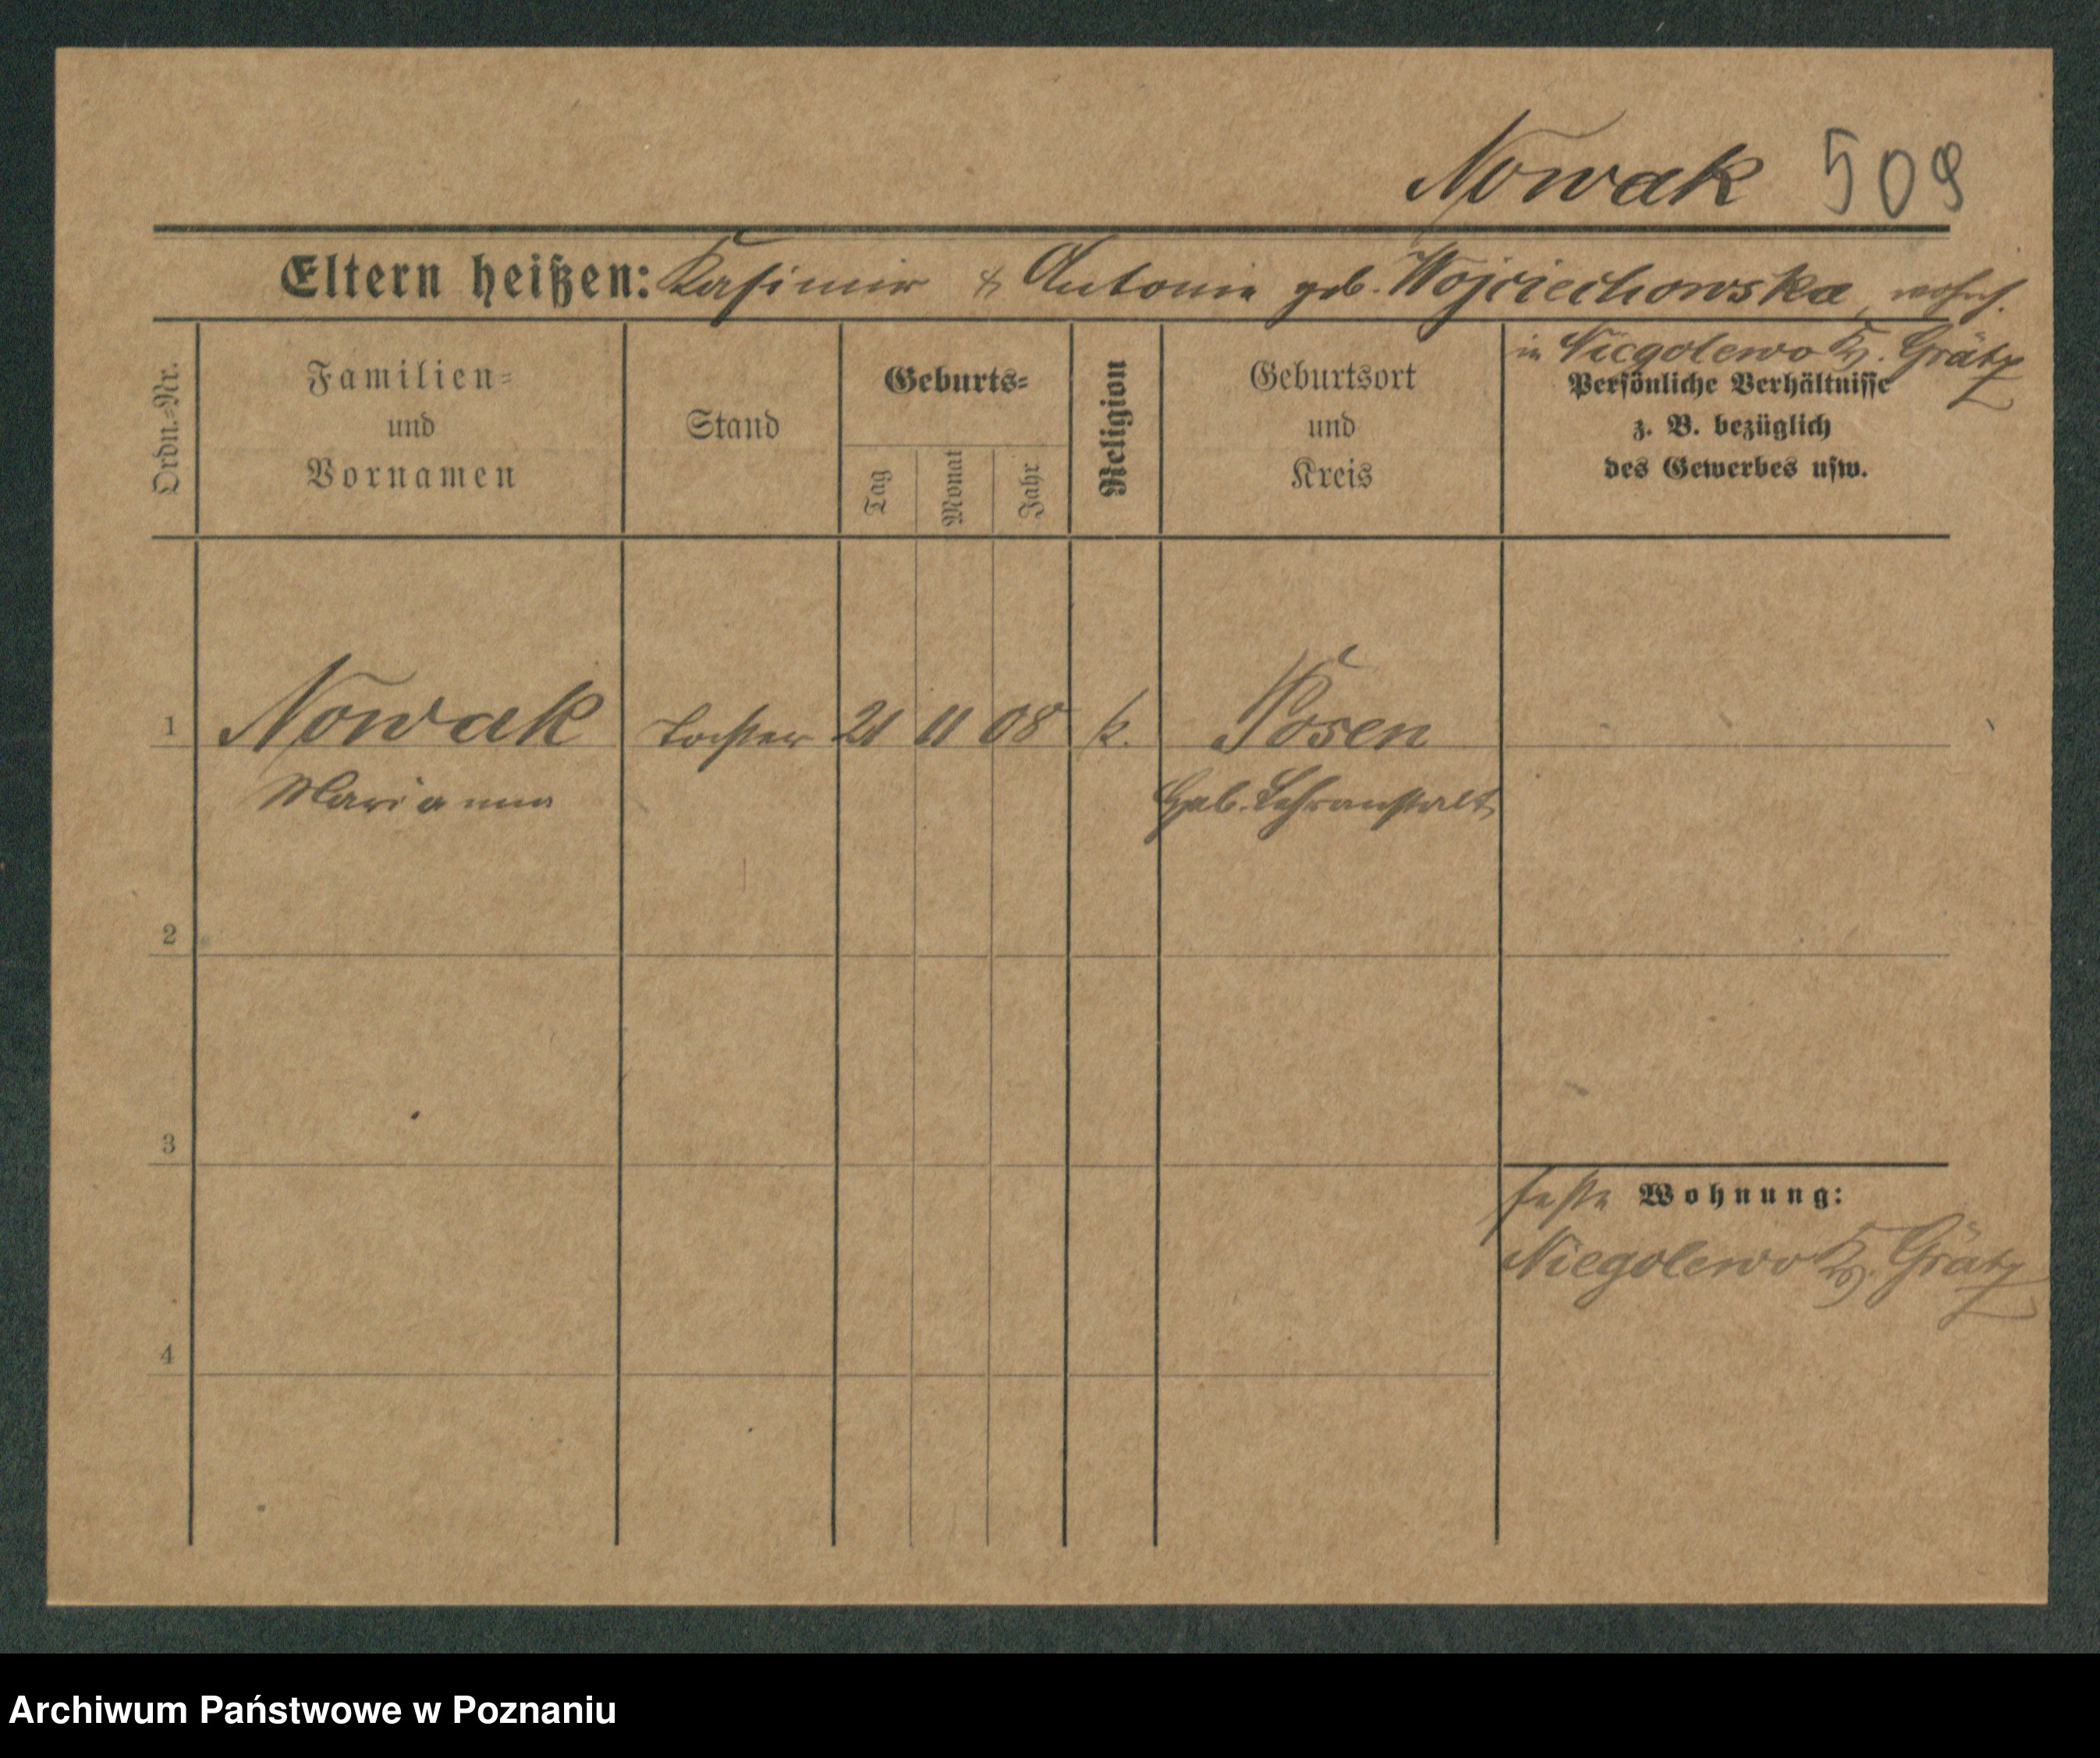 Nowak 509
Eltern heißen: Kasimir & Antonie geb. Wojciechowska, wohnh.
in Niegolewo Kr. Grätz
Ordn.-Nr.
Familien-
und
Vornamen
Stand
Geburts-
Tag
Monat
Jahr
Religion
Geburtsort
und
Kreis
Persönliche Verhältnisse
z. B. bezüglich
des Gewerbes usw.
1 Nowak Tochter 21 11 08 k. Posen
Marianna Heb. Lehranstalt
2
3
feste Wohnung:
Niegolewo Kr. Grätz
4
Archiwum Państwowe w Poznaniu